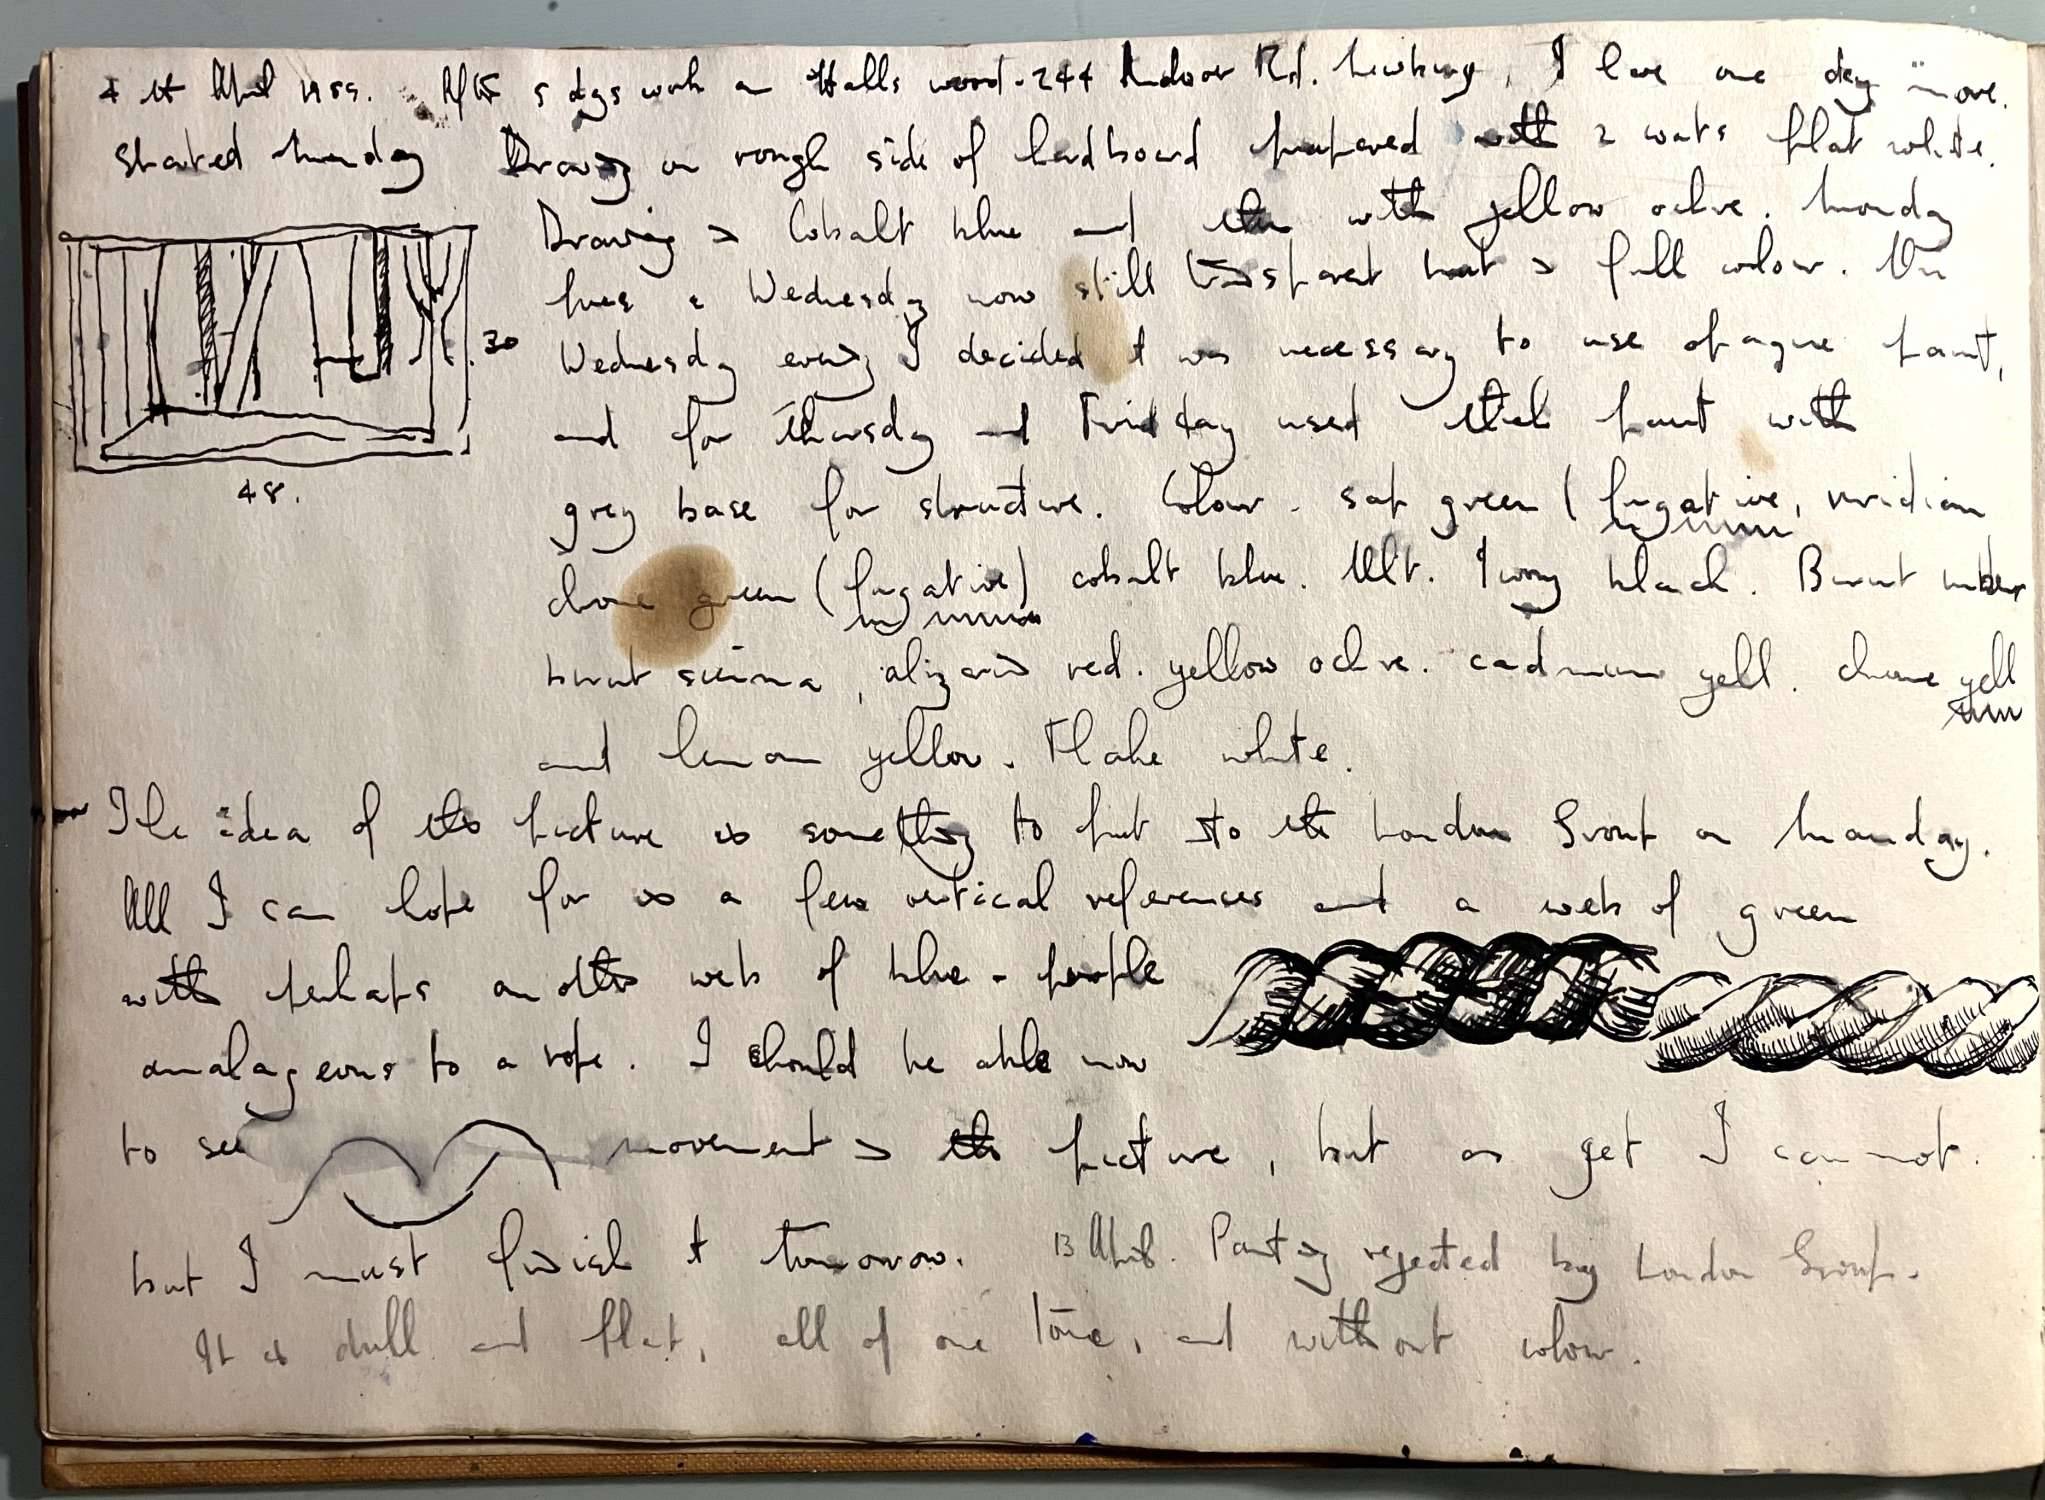 4 th April 1959. After 5 days work on Halls wood. 244 Andover Rd. Newbury, I have one day more.
Started Monday Drawing on rough side of hardboard prepared with 2 coats flat white.
Drawing in Cobalt blue and then with yellow ochre. Monday
Tues & Wednesday now still transparent but in full colour. On
Wednesday evening I decided it was necessary to use opaque paint,
30
and for Thursday and Friday used thick paint with
48.
grey base for structure. Colour. sap green (fugative, viridian
chrome green (fugative) cobalt blue. Ult. Ivory black. Burnt umber
burnt sienna, alizarin red. yellow ochre. cadmium yell. chrome yell
and lemon yellow. Flake white.
The idea of the picture is something to put to the London Group on Monday.
All I can hope for is a few vertical references and a web of green
with perhaps another web of blue-purple
analageous to a rope. I should be able now
to see movement in the picture, but as yet I cannot.
but I must finish it tomorrow. 13 April. Painting rejected by London Group.
It is dull and flat, all of one tone, and without colour.